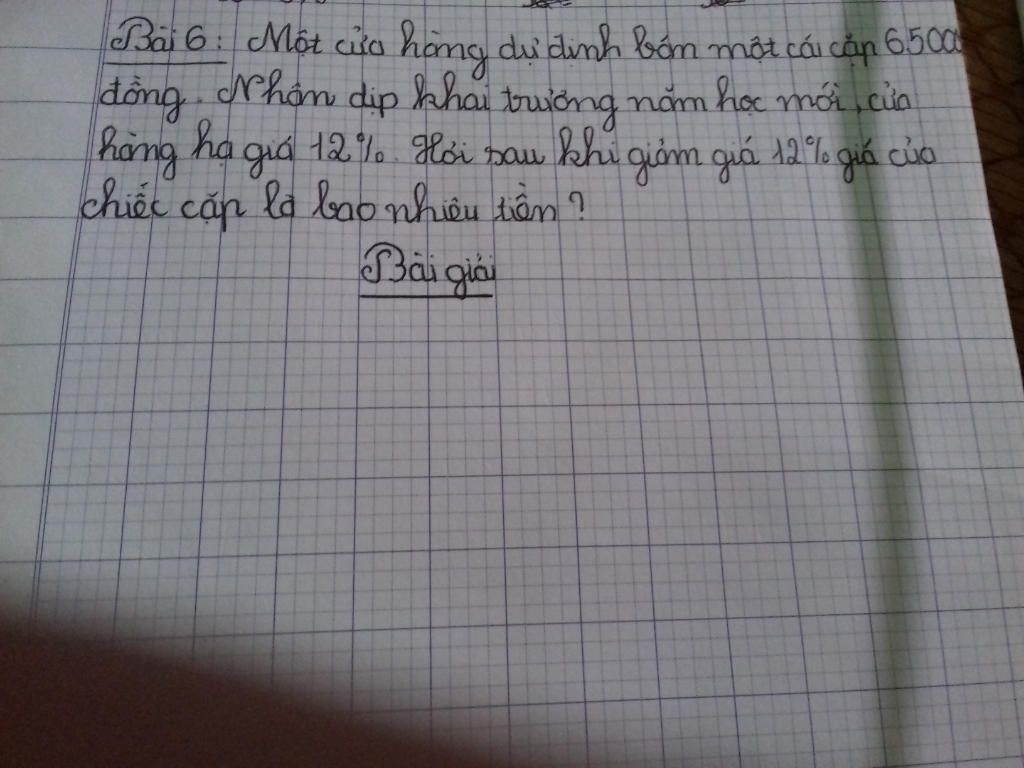 Bài 6: Một cửa hàng dự định bán một cái cặp 65000
đồng. Nhân dịp khai trường năm học mới, cửa
hàng hạ giá 12%. Hỏi sau khi giảm giá 12% giá của
chiếc cặp là bao nhiêu tiền?
Bài giải